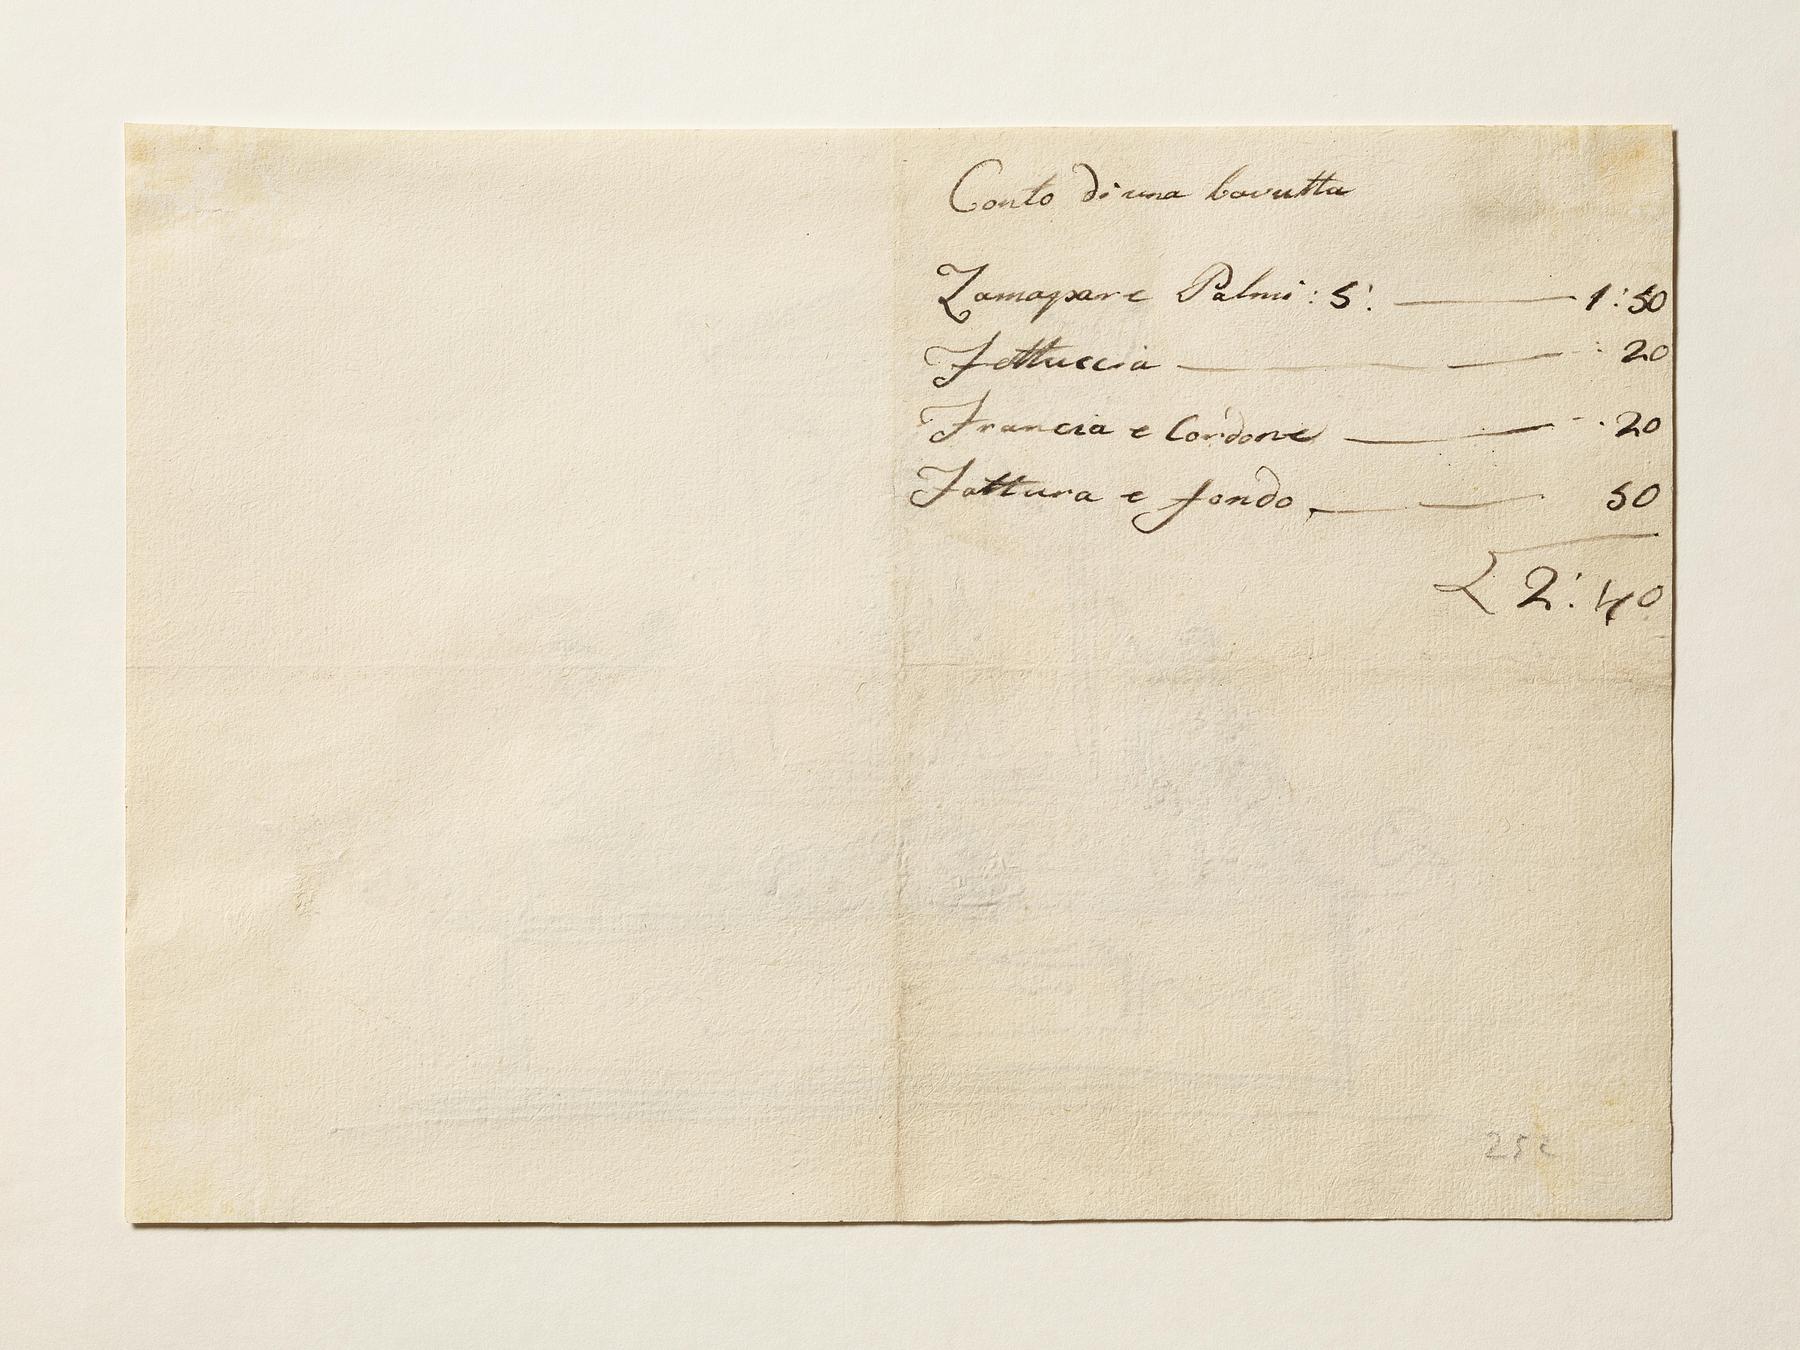 Conto di una bavutta
Zamapare Palmi: 5: 1:50
Fettuccia : 20
Francia e Cordone . 20
Fattura e fondo 50
2:40
252